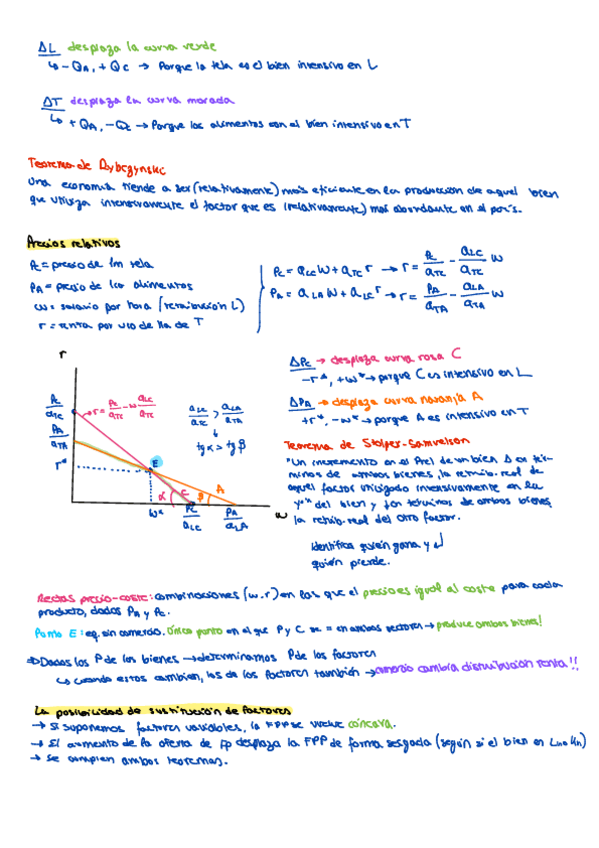 ΔL desplaza la curva verde
↳ -QA, +QC → Porque la tela es el bien intensivo en L
ΔT desplaza la curva morada
↳ +QA, -QC → Porque los alimentos son el bien intensivo en T
Teorema de Rybczynski
Una economía tiende a ser (relativamente) más eficiente en la producción de aquel bien
que utiliza intensivamente el factor que es (relativamente) más abundante en el país.
Precios relativos
Pc = precio de 1m tela
PA = precio de 1 alimentos
w = salario por hora (retribución L)
r = renta por uso de Ha de T
Pc = aLC w + aTC r → r = Pc/aTC - aLC/aTC w
PA = aLA w + aLC r → r = PA/aTA - aLA/aTA w
r
Pc/aTC
PA/aTA
r*
r = Pc/aTC - w aLC/aTC
aLC/aTC > aLA/aTA
↓
tg α > tg β
E
α C β A
w* Pc/aLC PA/aLA w
ΔPc → desplaza curva rosa C
-r*, +w* → porque C es intensivo en L
ΔPA → desplaza curva naranja A
+r*, -w* → porque A es intensivo en T
Teorema de Stolper-Samuelson
"Un incremento en el Prel de un bien Δ en tér-
minos de ambos bienes, la remun. real de
aquel factor utilizado intensivamente en la
del bien y en términos de ambos bienes,
la retrib. real del otro factor.
Identifica quién gana y
quién pierde.
Rectas precio-coste: combinaciones (w,r) en las que el precio es igual al coste para cada
producto, dados PA y Pc.
Punto E: eq. sin comercio. Único punto en el que P y C se = en ambos sectores → produce ambos bienes!
⇒ Dados los P de los bienes → determinamos P de los factores
↳ cuando estos cambien, los de los factores también → comercio cambia distribución renta!!
La posibilidad de sustitución de factores
→ Si suponemos factores variables, la FPP se vuelve cóncava.
→ El aumento de la oferta de Fp desplaza la FPP de forma sesgada (según si el bien en Ln o Kn)
→ Se cumplen ambos teoremas.